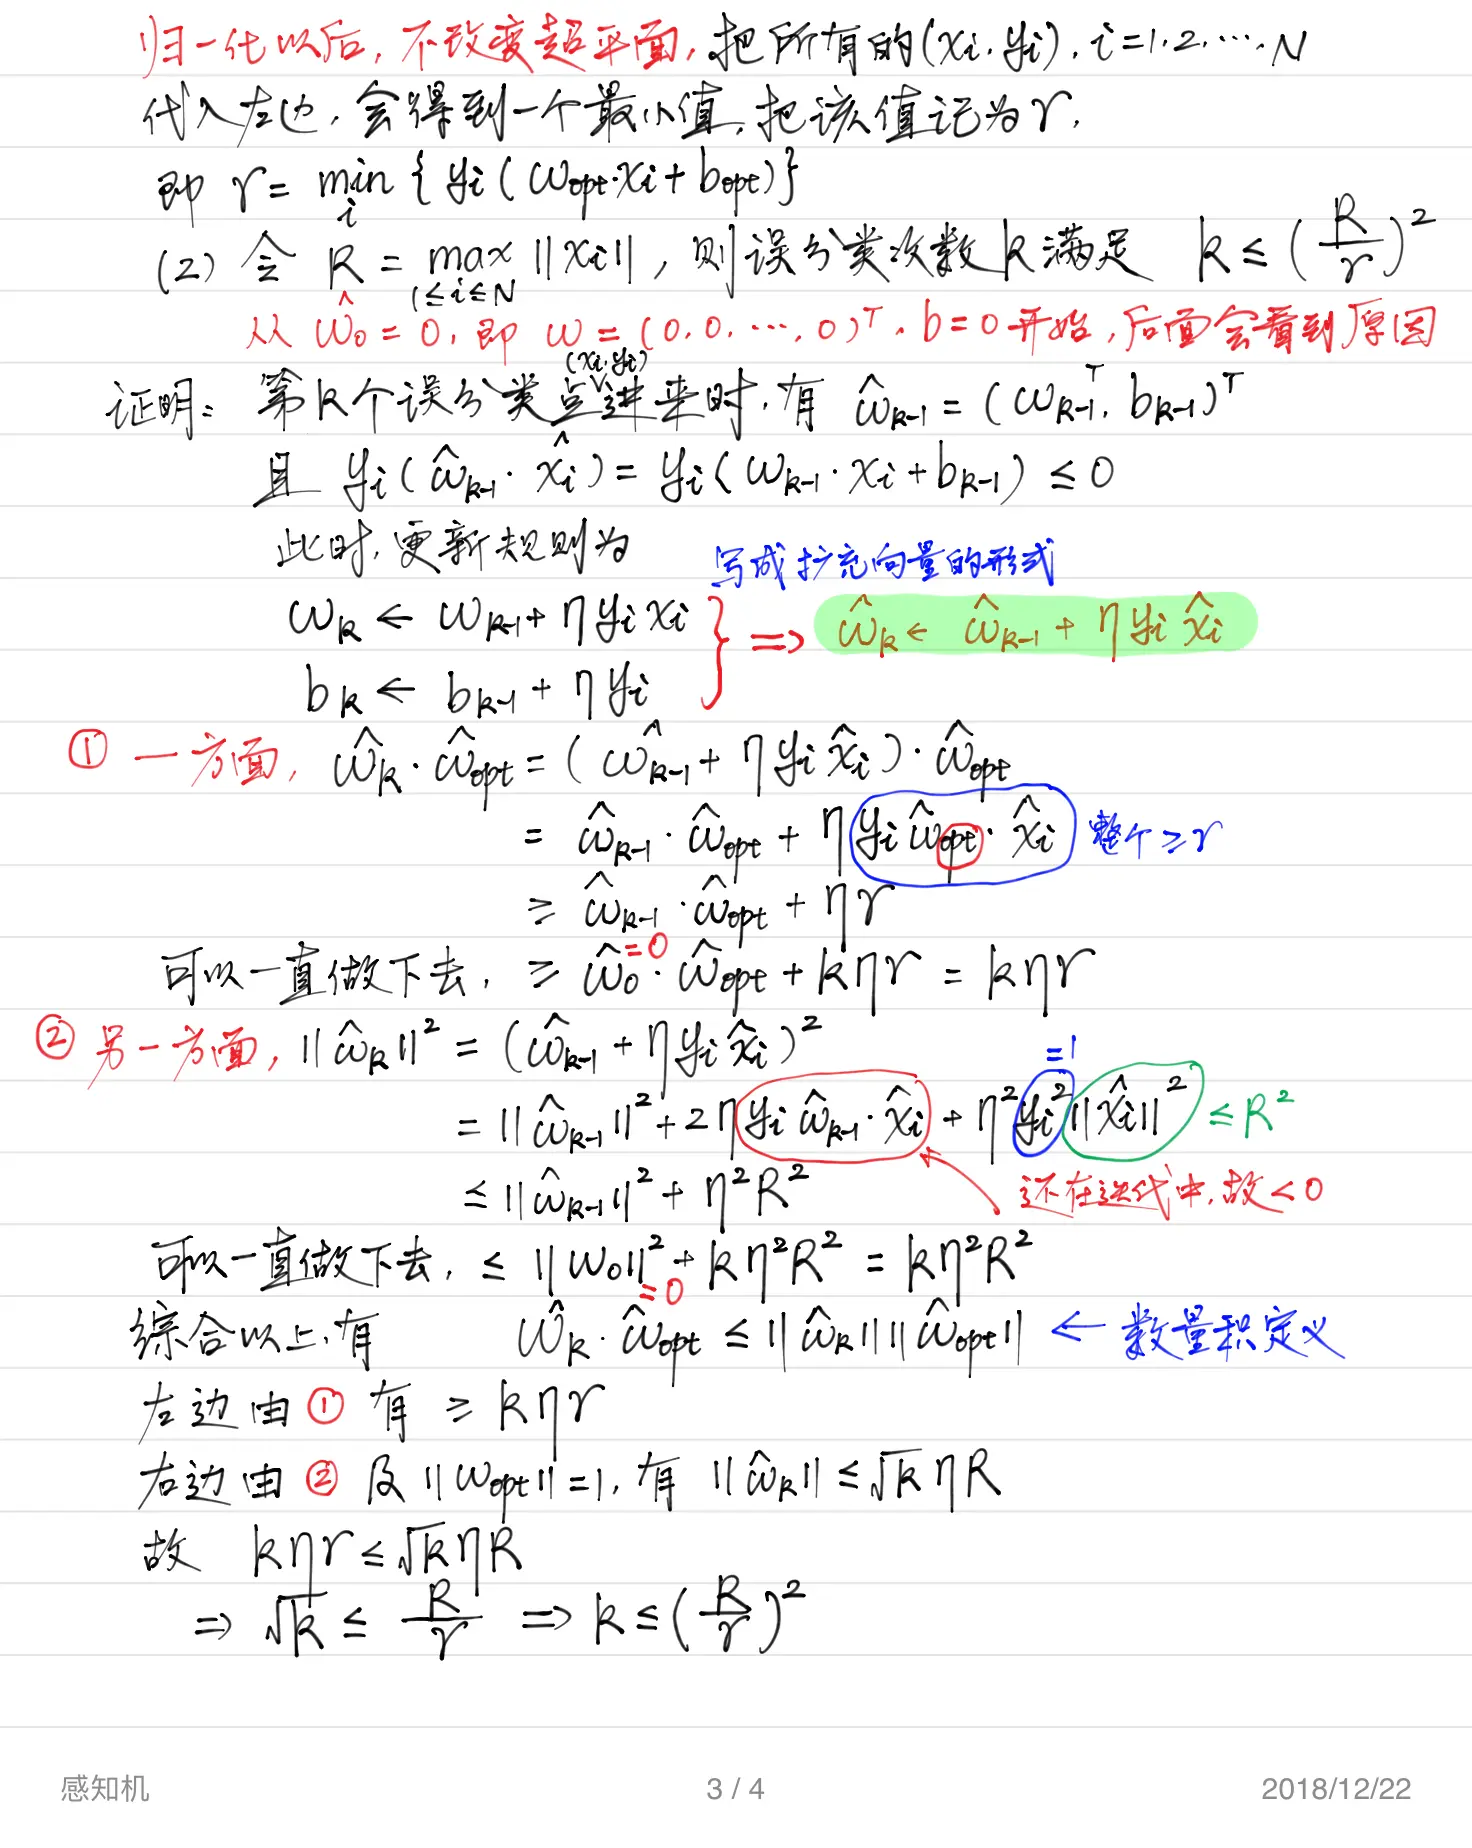 归一化以后，不改变超平面，把所有的(xi, yi), i=1,2,…,N
代入左边，会得到一个最小值，把该值记为γ，
即 γ = min_i { yi (ωopt·xi + bopt) }
(2) 令 R = max_{1≤i≤N} ||xi||，则误分类次数k满足 k ≤ (R/γ)²
从 ω̂0 = 0, 即 ω = (0, 0, …, 0)ᵀ, b=0 开始，后面会看到原因
证明：第k个误分类点(xi, yi)进来时，有 ω̂k-1 = (ωk-1ᵀ, bk-1)ᵀ
且 yi (ω̂k-1 · x̂i) = yi (ωk-1 · xi + bk-1) ≤ 0
此时，更新规则为
写成扩充向量的形式
ωk ← ωk-1 + η yi xi } ⇒ ω̂k ← ω̂k-1 + η yi x̂i
bk ← bk-1 + η yi
① 一方面，ω̂k · ω̂opt = (ω̂k-1 + η yi x̂i) · ω̂opt
= ω̂k-1 · ω̂opt + η yi ω̂opt · x̂i 整个 ≥ γ
≥ ω̂k-1 · ω̂opt + ηγ
=0
可以一直做下去，≥ ω̂0 · ω̂opt + kηγ = kηγ
② 另一方面，||ω̂k||² = (ω̂k-1 + η yi x̂i)²
=1
= ||ω̂k-1||² + 2η yi ω̂k-1 · x̂i + η² yi² ||x̂i||² ≤ R²
≤ ||ω̂k-1||² + η²R² 还在迭代中，故<0
可以一直做下去，≤ ||ω0||² + kη²R² = kη²R²
=0
综合以上，有 ω̂k · ω̂opt ≤ ||ω̂k|| ||ω̂opt|| ← 数量积定义
左边由 ① 有 ≥ kηγ
右边由 ② 及 ||ωopt|| = 1, 有 ||ω̂k|| ≤ √k ηR
故 kηγ ≤ √k ηR
⇒ √k ≤ R/γ ⇒ k ≤ (R/γ)²
感知机 3 / 4 2018/12/22